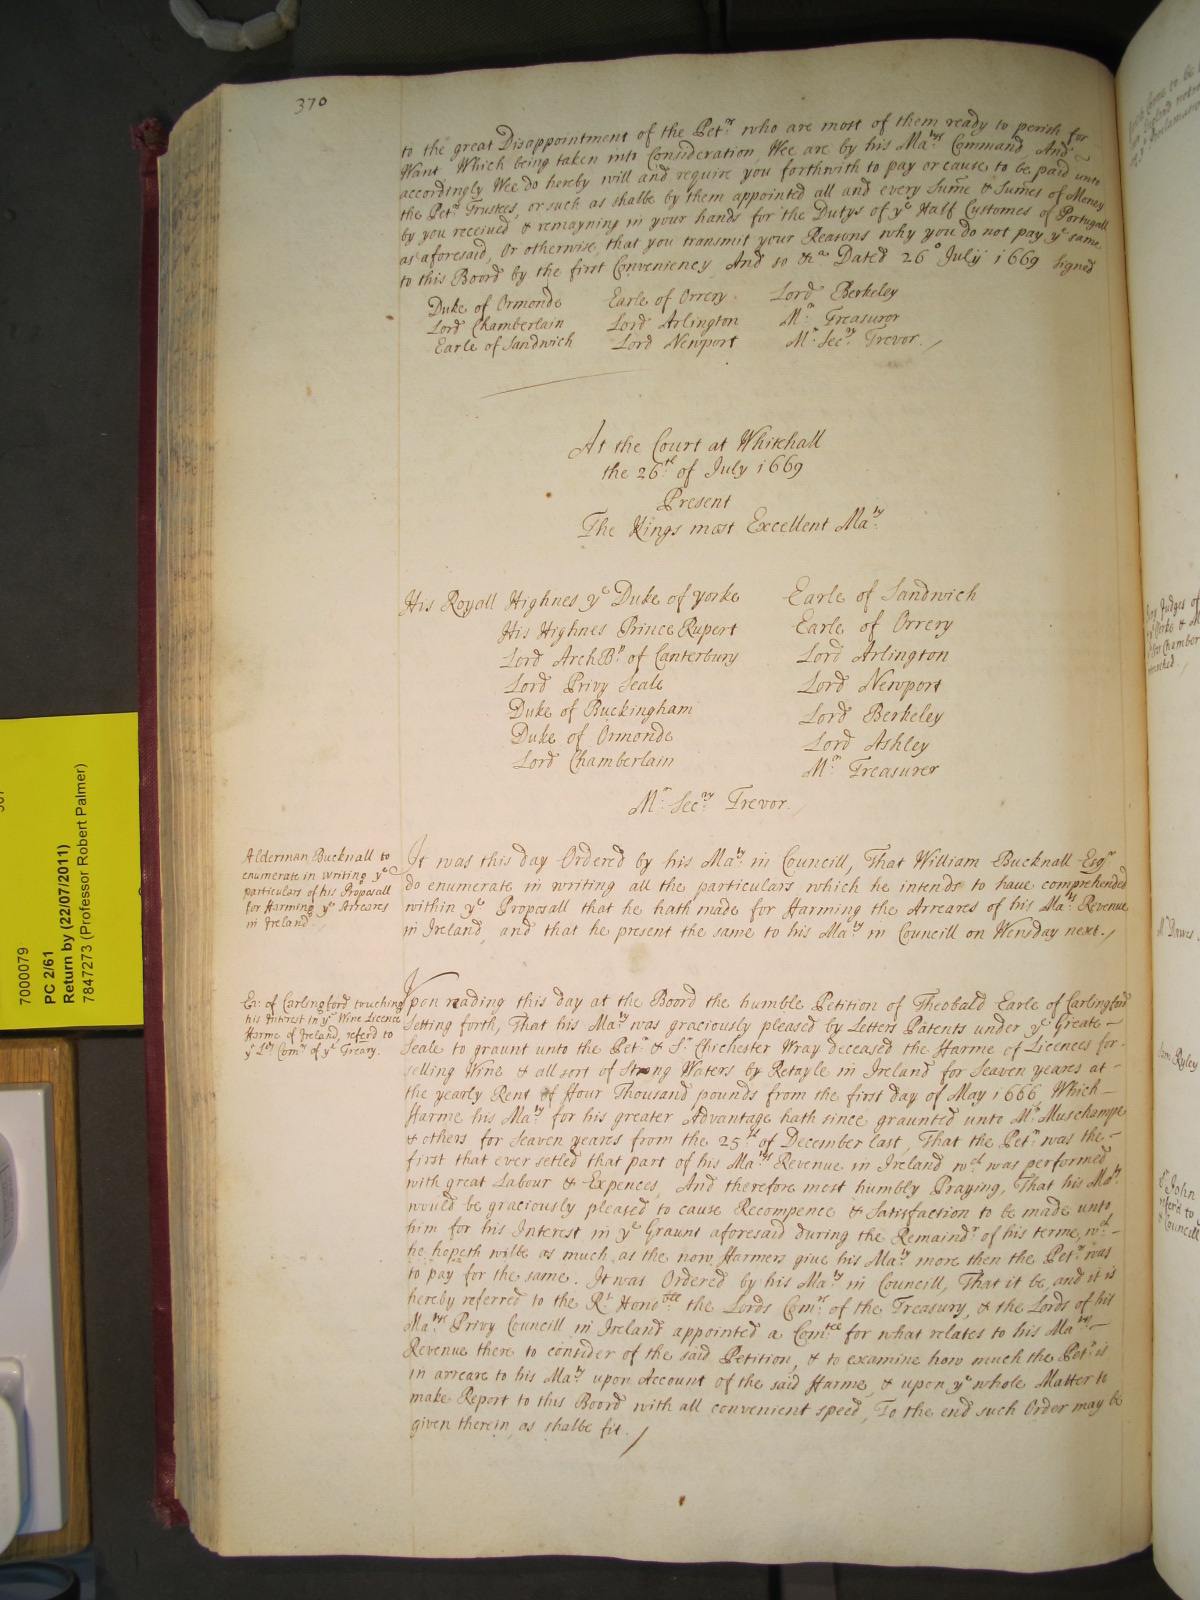 370
to the great Disappointment of the Petrs. who are most of them ready to perish for
Want Which being taken into Consideration, Wee are by his Matys. Command, And
accordingly Wee do hereby will and require you forthwith to pay or cause to be paid unto
the Petrs. Trustees, or such as shalbe by them appointed all and every Sume & Sumes of Money
by you received & remayning in your hands for the Dutys of ye Half Customes of Portugall
as aforesaid, Or otherwise, that you transmit your Reasons why you do not pay ye same
to this Boord by the first Conveniency And so &a. Dated 26o July 1669 Signed
Duke of Ormonde Earle of Orrery. Lord Berkeley
Lord Chamberlain Lord Arlington Mr. Treasuror
Earle of Sandwich Lord Newport Mr. Secry. Trevor.
At the Court at Whitehall
the 26th. of July 1669
Present
The Kings most Excellent Maty.
His Royall Highnes ye Duke of yorke Earle of Sandwich
His Highnes Prince Rupert Earle of Orrery
Lord ArchBp. of Canterbury Lord Arlington
Lord Privy Seale Lord Newport
Duke of Buckingham Lord Berkeley
Duke of Ormonde Lord Ashley
Lord Chamberlain Mr. Treasurer
Mr. Secry. Trevor.
Alderman Bucknall to
enumerate in writing ye
particulars of his Proposall
for Farming ye Arreares
in Ireland.
It was this day Ordered by his Maty. in Councill, That William Bucknall Esqr.
do enumerate in writing all the particulars which he intends to have comprehended
within ye Proposall that he hath made for Farming the Arreares of his Matys. Revenue
in Ireland, and that he present the same to his Maty in Councill on Wensday next.
Ea: of Carlingford touching
his Interest in ye Wine Licence
Farme of Ireland, referd to
ye Lds. Comrs. of ye Treary.
Upon reading this day at the Boord the humble Petition of Theobald Earle of Carlingford
Setting forth, That his Maty was graciously pleased by Letters Patents under ye Greate
Seale to graunt unto the Petr. & Sr. Chichester Wray deceased the Farme of Licences for
selling Wine & all sort of Strong Waters by Retayle in Ireland for Seaven yeares at
the yearly Rent of Four Thousand pounds from the first day of May 1666, Which
Farme his Maty. for his greater Advantage hath since graunted unto Mr. Muschampe
& others for Seaven yeares from the 25th of December last, That the Petr. was the
first that ever setled that part of his Matys Revenue in Ireland wch. was performed
with great Labour & Expences, And therefore most humbly Praying, That his Maty.
would be graciously pleased to cause Recompence & Satisfaction to be made unto
him for his Interest in ye Graunt aforesaid during the Remaindr. of his terme, wch.
he hopeth wilbe as much, as the now Farmers give his Maty more then the Petr. was
to pay for the same. It was Ordered by his Maty. in Councill, That it be, and it is
hereby referred to the Rt. Honoble. the Lords Comrs. of the Treasury, & the Lords of his
Matys. Privy Councill in Ireland appointed a Comtee for what relates to his Matys.
Revenue there to consider of the said Petition, & to examine how much the Petr. is
in arreare to his Maty upon Account of the said Farme, & upon ye whole Matter to
make Report to this Boord with all convenient speed, To the end such Order may be
given therein, as shalbe fit.
7000079
PC 2/61
Return by (22/07/2011)
7847273 (Professor Robert Palmer)